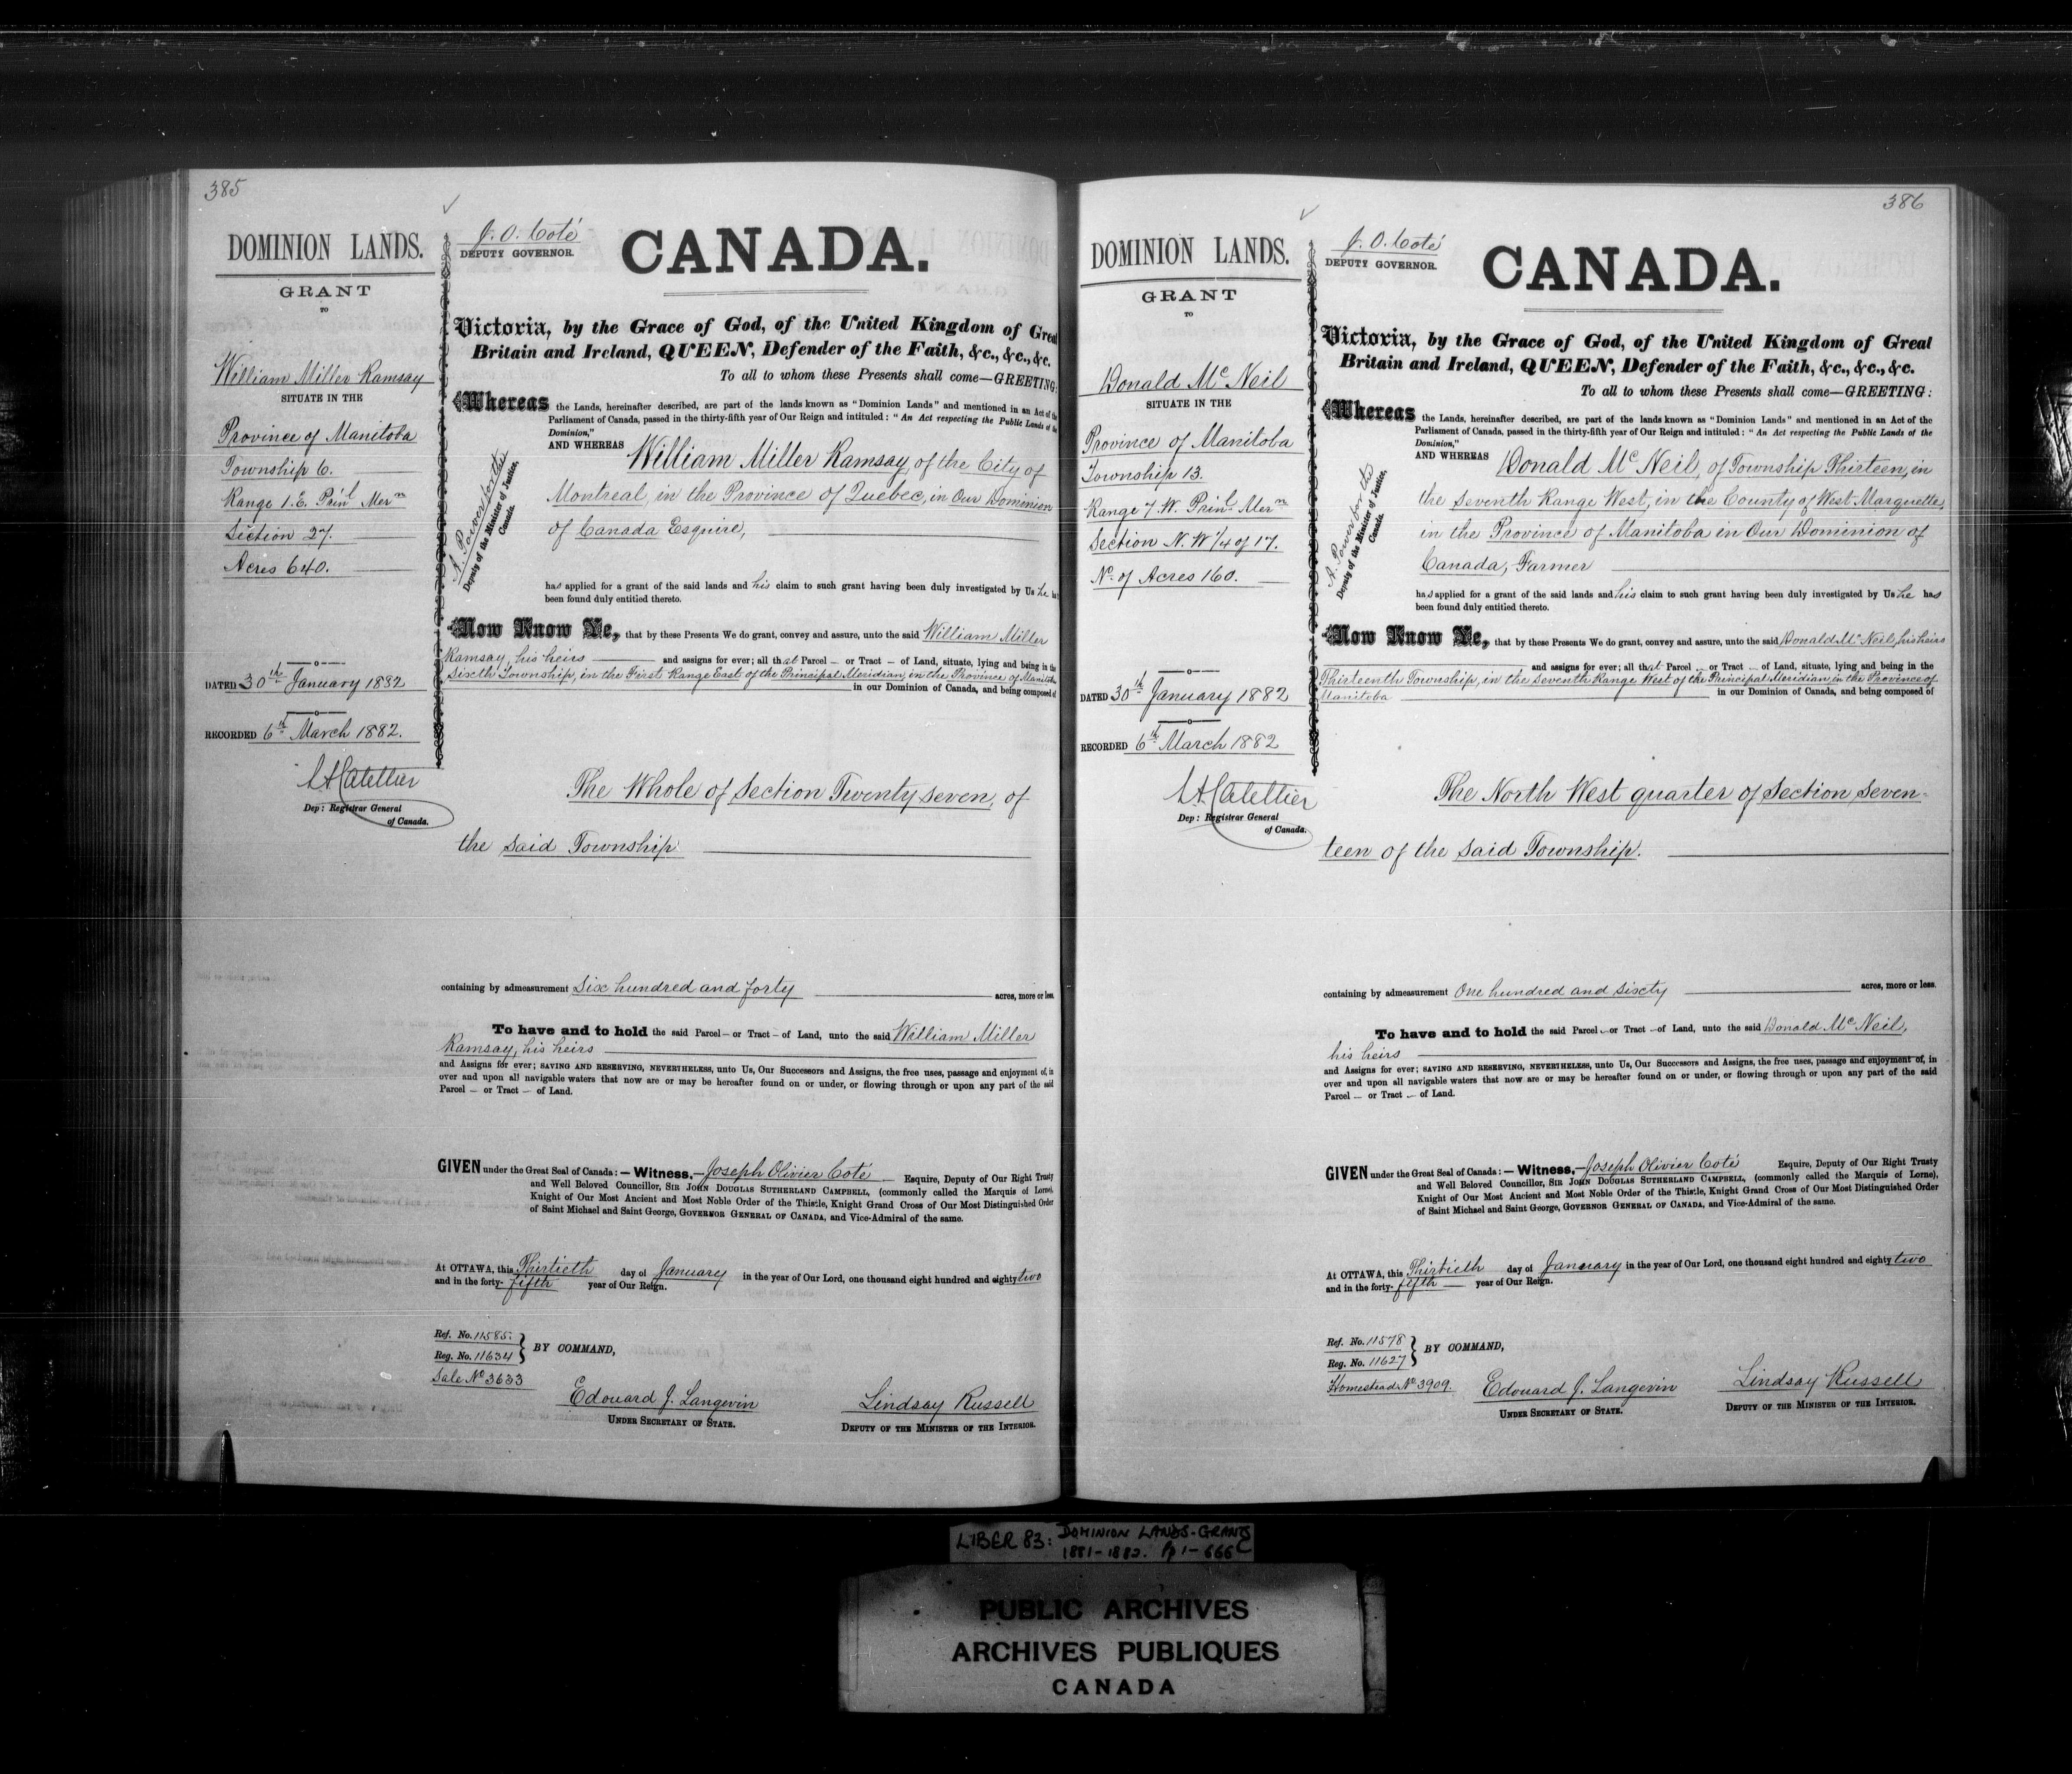 385
DOMINION LANDS.
GRANT
TO
William Miller Ramsay
SITUATE IN THE
Province of Manitoba
Township 6.
Range 1. E. Prin'l Mer'n
Section 27.
Acres 640.
DATED 30th January 1882
RECORDED 6th March 1882.
Dep: Registrar General
of Canada.
J. O. Coté
DEPUTY GOVERNOR.
CANADA.
Victoria, by the Grace of God, of the United Kingdom of Great
Britain and Ireland, QUEEN, Defender of the Faith, &c., &c., &c.
To all to whom these Presents shall come—GREETING:
Whereas the Lands, hereinafter described, are part of the lands known as "Dominion Lands" and mentioned in an Act of the
Parliament of Canada, passed in the thirty-fifth year of Our Reign and intituled: "An Act respecting the Public Lands of the
Dominion,"
AND WHEREAS William Miller Ramsay, of the City of
Montreal, in the Province of Quebec, in Our Dominion
of Canada Esquire,
A. Power for the
Deputy of the Minister of Justice,
Canada.
has applied for a grant of the said lands and his claim to such grant having been duly investigated by Us he has
been found duly entitled thereto.
Now Know Ye, that by these Presents We do grant, convey and assure, unto the said William Miller
Ramsay, his heirs and assigns for ever; all that Parcel — or Tract — of Land, situate, lying and being in the
Sixth Township, in the First Range East of the Principal Meridian, in the Province of Manitoba
in our Dominion of Canada, and being composed of
The Whole of Section Twenty seven, of
the said Township
containing by admeasurement Six hundred and forty acres, more or less.
To have and to hold the said Parcel — or Tract — of Land, unto the said William Miller
Ramsay, his heirs
and Assigns for ever; SAVING AND RESERVING, NEVERTHELESS, unto Us, Our Successors and Assigns, the free uses, passage and enjoyment of, in
over and upon all navigable waters that now are or may be hereafter found on or under, or flowing through or upon any part of the said
Parcel — or Tract — of Land.
GIVEN under the Great Seal of Canada: — Witness, — Joseph Olivier Coté Esquire, Deputy of Our Right Trusty
and Well Beloved Councillor, SIR JOHN DOUGLAS SUTHERLAND CAMPBELL, (commonly called the Marquis of Lorne),
Knight of Our Most Ancient and Most Noble Order of the Thistle, Knight Grand Cross of Our Most Distinguished Order
of Saint Michael and Saint George, GOVERNOR GENERAL OF CANADA, and Vice-Admiral of the same.
At OTTAWA, this Thirtieth day of January in the year of Our Lord, one thousand eight hundred and eighty two
and in the forty-fifth year of Our Reign.
Ref. No. 11585.
Reg. No. 11634
BY COMMAND,
Sale No 3633
Edouard J. Langevin
UNDER SECRETARY OF STATE.
Lindsay Russell
DEPUTY OF THE MINISTER OF THE INTERIOR.
386
DOMINION LANDS.
GRANT
TO
Donald McNeil
SITUATE IN THE
Province of Manitoba
Township 13.
Range 7. W. Prin'l Mer'n
Section N. W 1/4 of 17.
No. of Acres 160.
DATED 30th January 1882
RECORDED 6th March 1882
Dep: Registrar General
of Canada.
J. O. Coté
DEPUTY GOVERNOR.
CANADA.
Victoria, by the Grace of God, of the United Kingdom of Great
Britain and Ireland, QUEEN, Defender of the Faith, &c., &c., &c.
To all to whom these Presents shall come—GREETING:
Whereas the Lands, hereinafter described, are part of the lands known as "Dominion Lands" and mentioned in an Act of the
Parliament of Canada, passed in the thirty-fifth year of Our Reign and intituled: "An Act respecting the Public Lands of the
Dominion,"
AND WHEREAS Donald McNeil, of Township Thirteen, in
the Seventh Range West, in the County of West Marquette,
in the Province of Manitoba in Our Dominion of
Canada, Farmer
A. Power for the
Deputy of the Minister of Justice,
Canada.
has applied for a grant of the said lands and his claim to such grant having been duly investigated by Us he has
been found duly entitled thereto.
Now Know Ye, that by these Presents We do grant, convey and assure, unto the said Donald McNeil, his heirs
and assigns for ever; all that Parcel — or Tract — of Land, situate, lying and being in the
Thirteenth Township, in the Seventh Range West of the Principal Meridian, in the Province of
Manitoba in our Dominion of Canada, and being composed of
The North West quarter of Section Seven-
teen of the said Township.
containing by admeasurement One hundred and Sixty acres, more or less.
To have and to hold the said Parcel — or Tract — of Land, unto the said Donald McNeil,
his heirs
and Assigns for ever; SAVING AND RESERVING, NEVERTHELESS, unto Us, Our Successors and Assigns, the free uses, passage and enjoyment of, in
over and upon all navigable waters that now are or may be hereafter found on or under, or flowing through or upon any part of the said
Parcel — or Tract — of Land.
GIVEN under the Great Seal of Canada: — Witness, — Joseph Olivier Coté Esquire, Deputy of Our Right Trusty
and Well Beloved Councillor, SIR JOHN DOUGLAS SUTHERLAND CAMPBELL, (commonly called the Marquis of Lorne),
Knight of Our Most Ancient and Most Noble Order of the Thistle, Knight Grand Cross of Our Most Distinguished Order
of Saint Michael and Saint George, GOVERNOR GENERAL OF CANADA, and Vice-Admiral of the same.
At OTTAWA, this Thirtieth day of January in the year of Our Lord, one thousand eight hundred and eighty two
and in the forty-fifth year of Our Reign.
Ref. No. 11578
Reg. No. 11627
BY COMMAND,
Homestead No 3909.
Edouard J. Langevin
UNDER SECRETARY OF STATE.
Lindsay Russell
DEPUTY OF THE MINISTER OF THE INTERIOR.
LIBER 83: DOMINION LANDS-GRANTS
1881-1882. Pp 1-666
PUBLIC ARCHIVES
ARCHIVES PUBLIQUES
CANADA